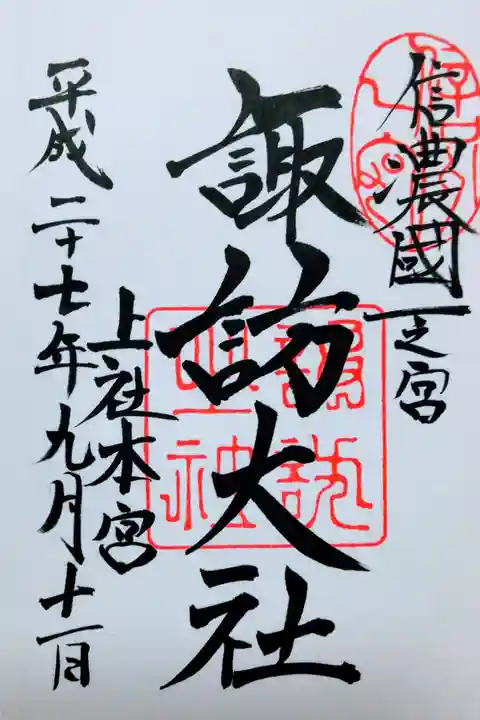 信濃國一之宮
諏訪大社
上社本宮
平成二十七年九月十一日
諏訪
明神